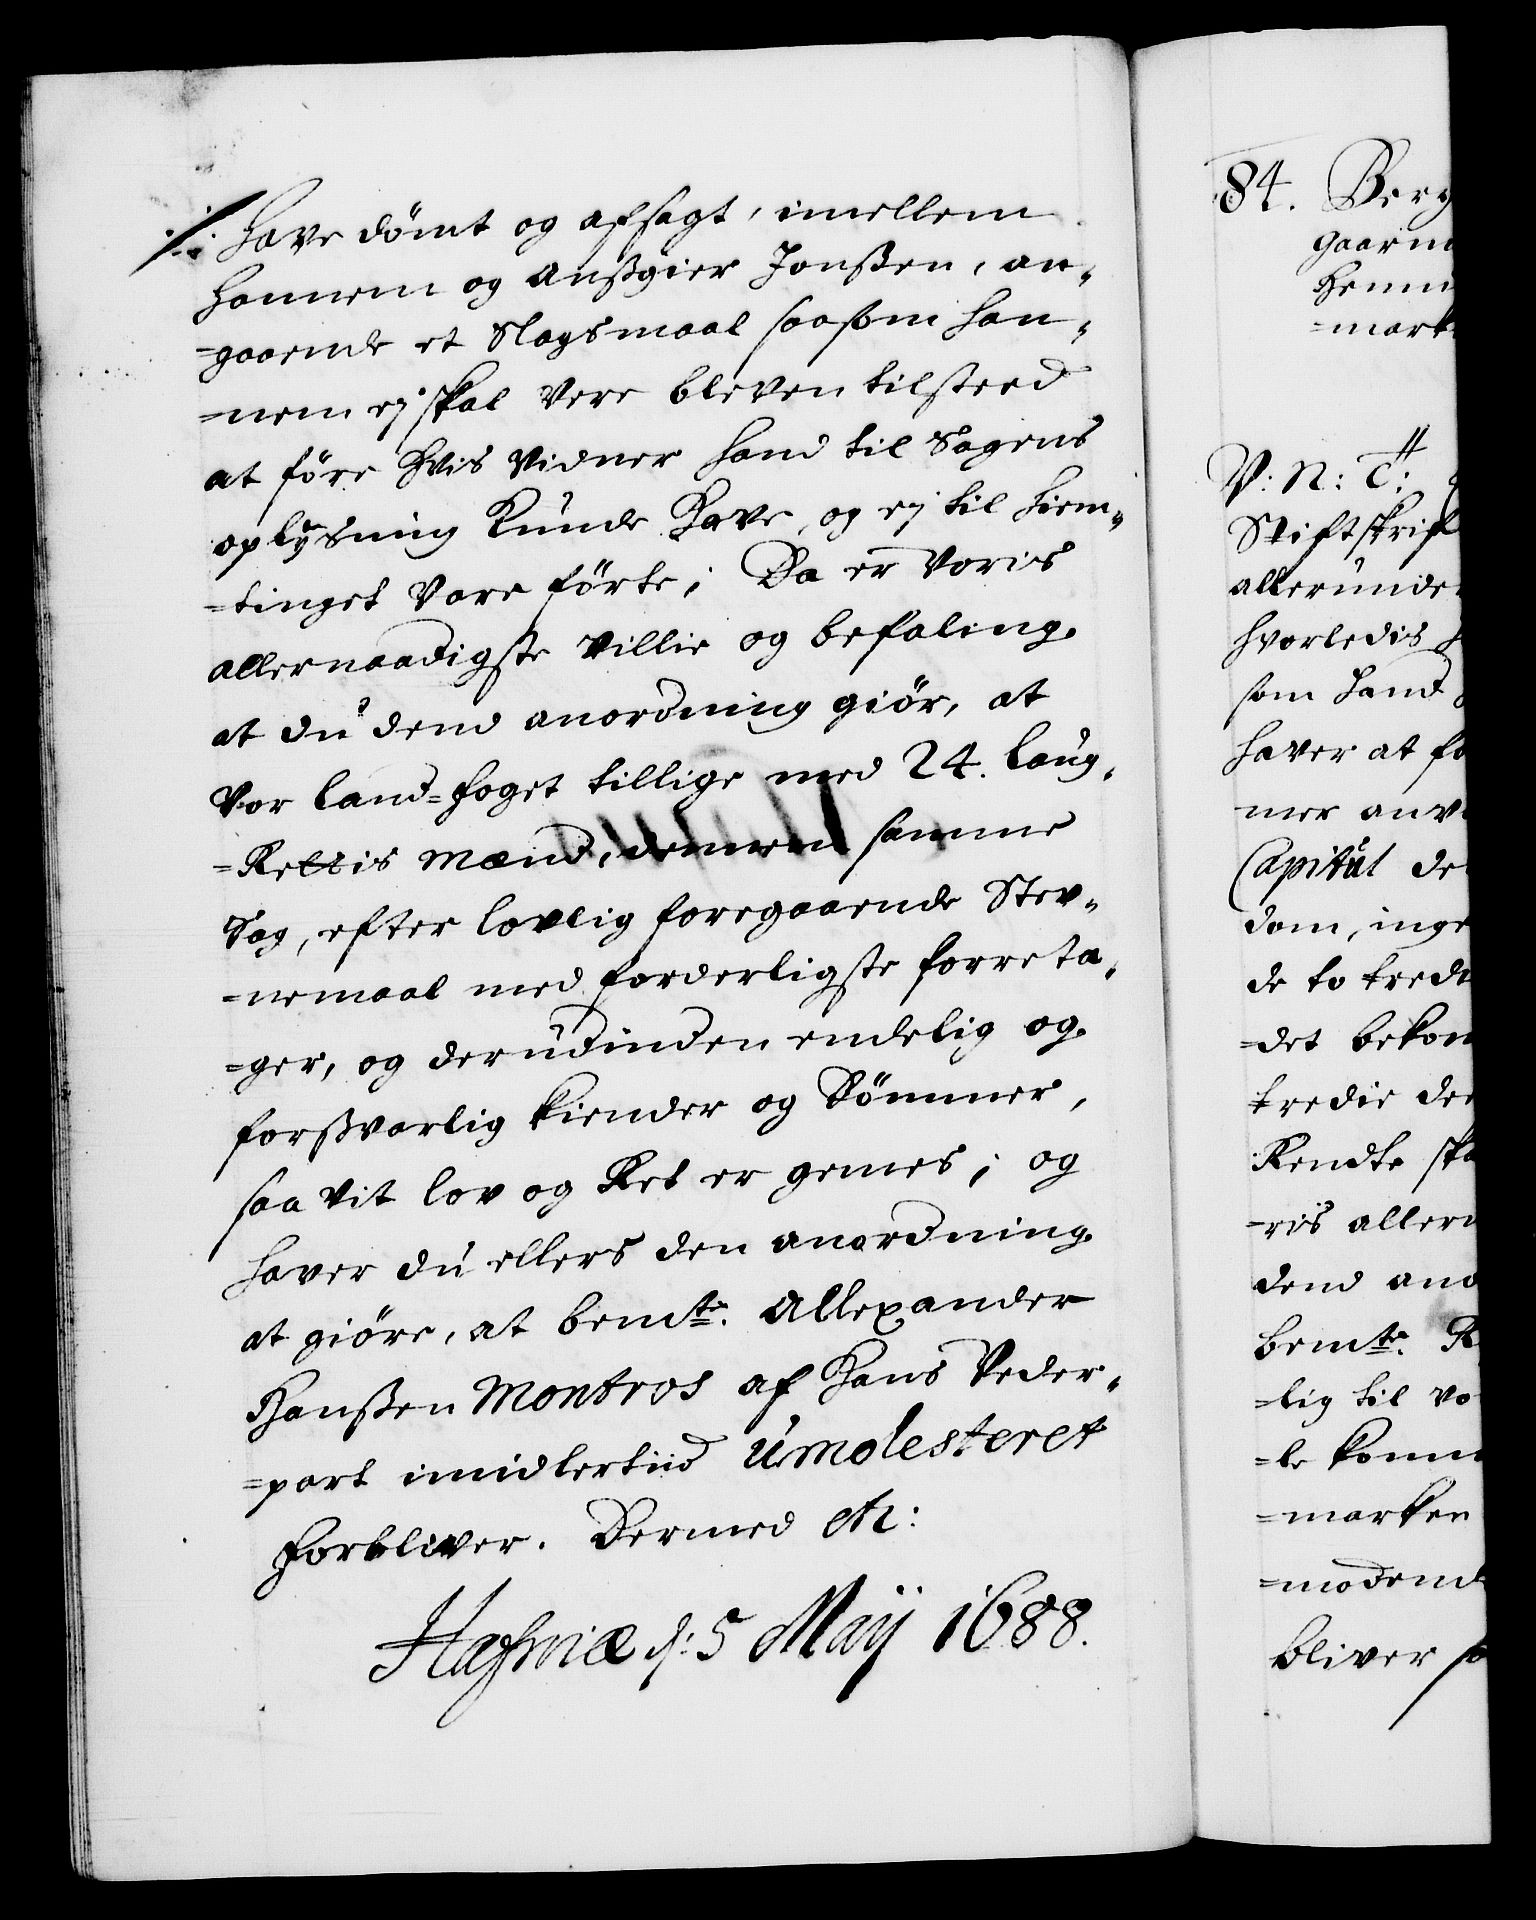 ·/· have dömt og afsagt, imellem
hannem og Anßgier Jonßen, an-
=gaaende et Slagsmaal saasom han-
=nem ej skal vere bleven tilsteed
at före hvis vidner hand til Sagens
oplysning kunde have, og ej til hiem-
=tinget vare förte; Da er voris
allernaadigste villie og befaling
at du dend anordning giör, at
vor land=foget tillige med 24. laug-
=Rettis mænd, dennem samme
Sag, efter lovlig foregaaende Stev-
=nemaal med forderligste forreta-
=ger, og derudinden endelig og
forßvarlig kiender og Dömmer,
saa vit lov og Ret er gemes; og
haver du ellers den anordning
at giöre, at bemte. Allexander
Hanßen Montros af hans Veder-
=part imidlertiid umolesteret
forbliver. Dermed etc:
Hafniæ d: 5 Maij 1688.
84. Berg
gaarm
Hemm
=mark
V: N: T:
Stiftskrif
allerunde
hvorledis
som hand
haver at fo
ner anv
Capitul de
dom, inge
de to tred
=det bekom
tredie de
Rendte ska
=ris allern
dend ano
bemte. R
=lig til vo
=le komm
=marken
=modend
bliver so